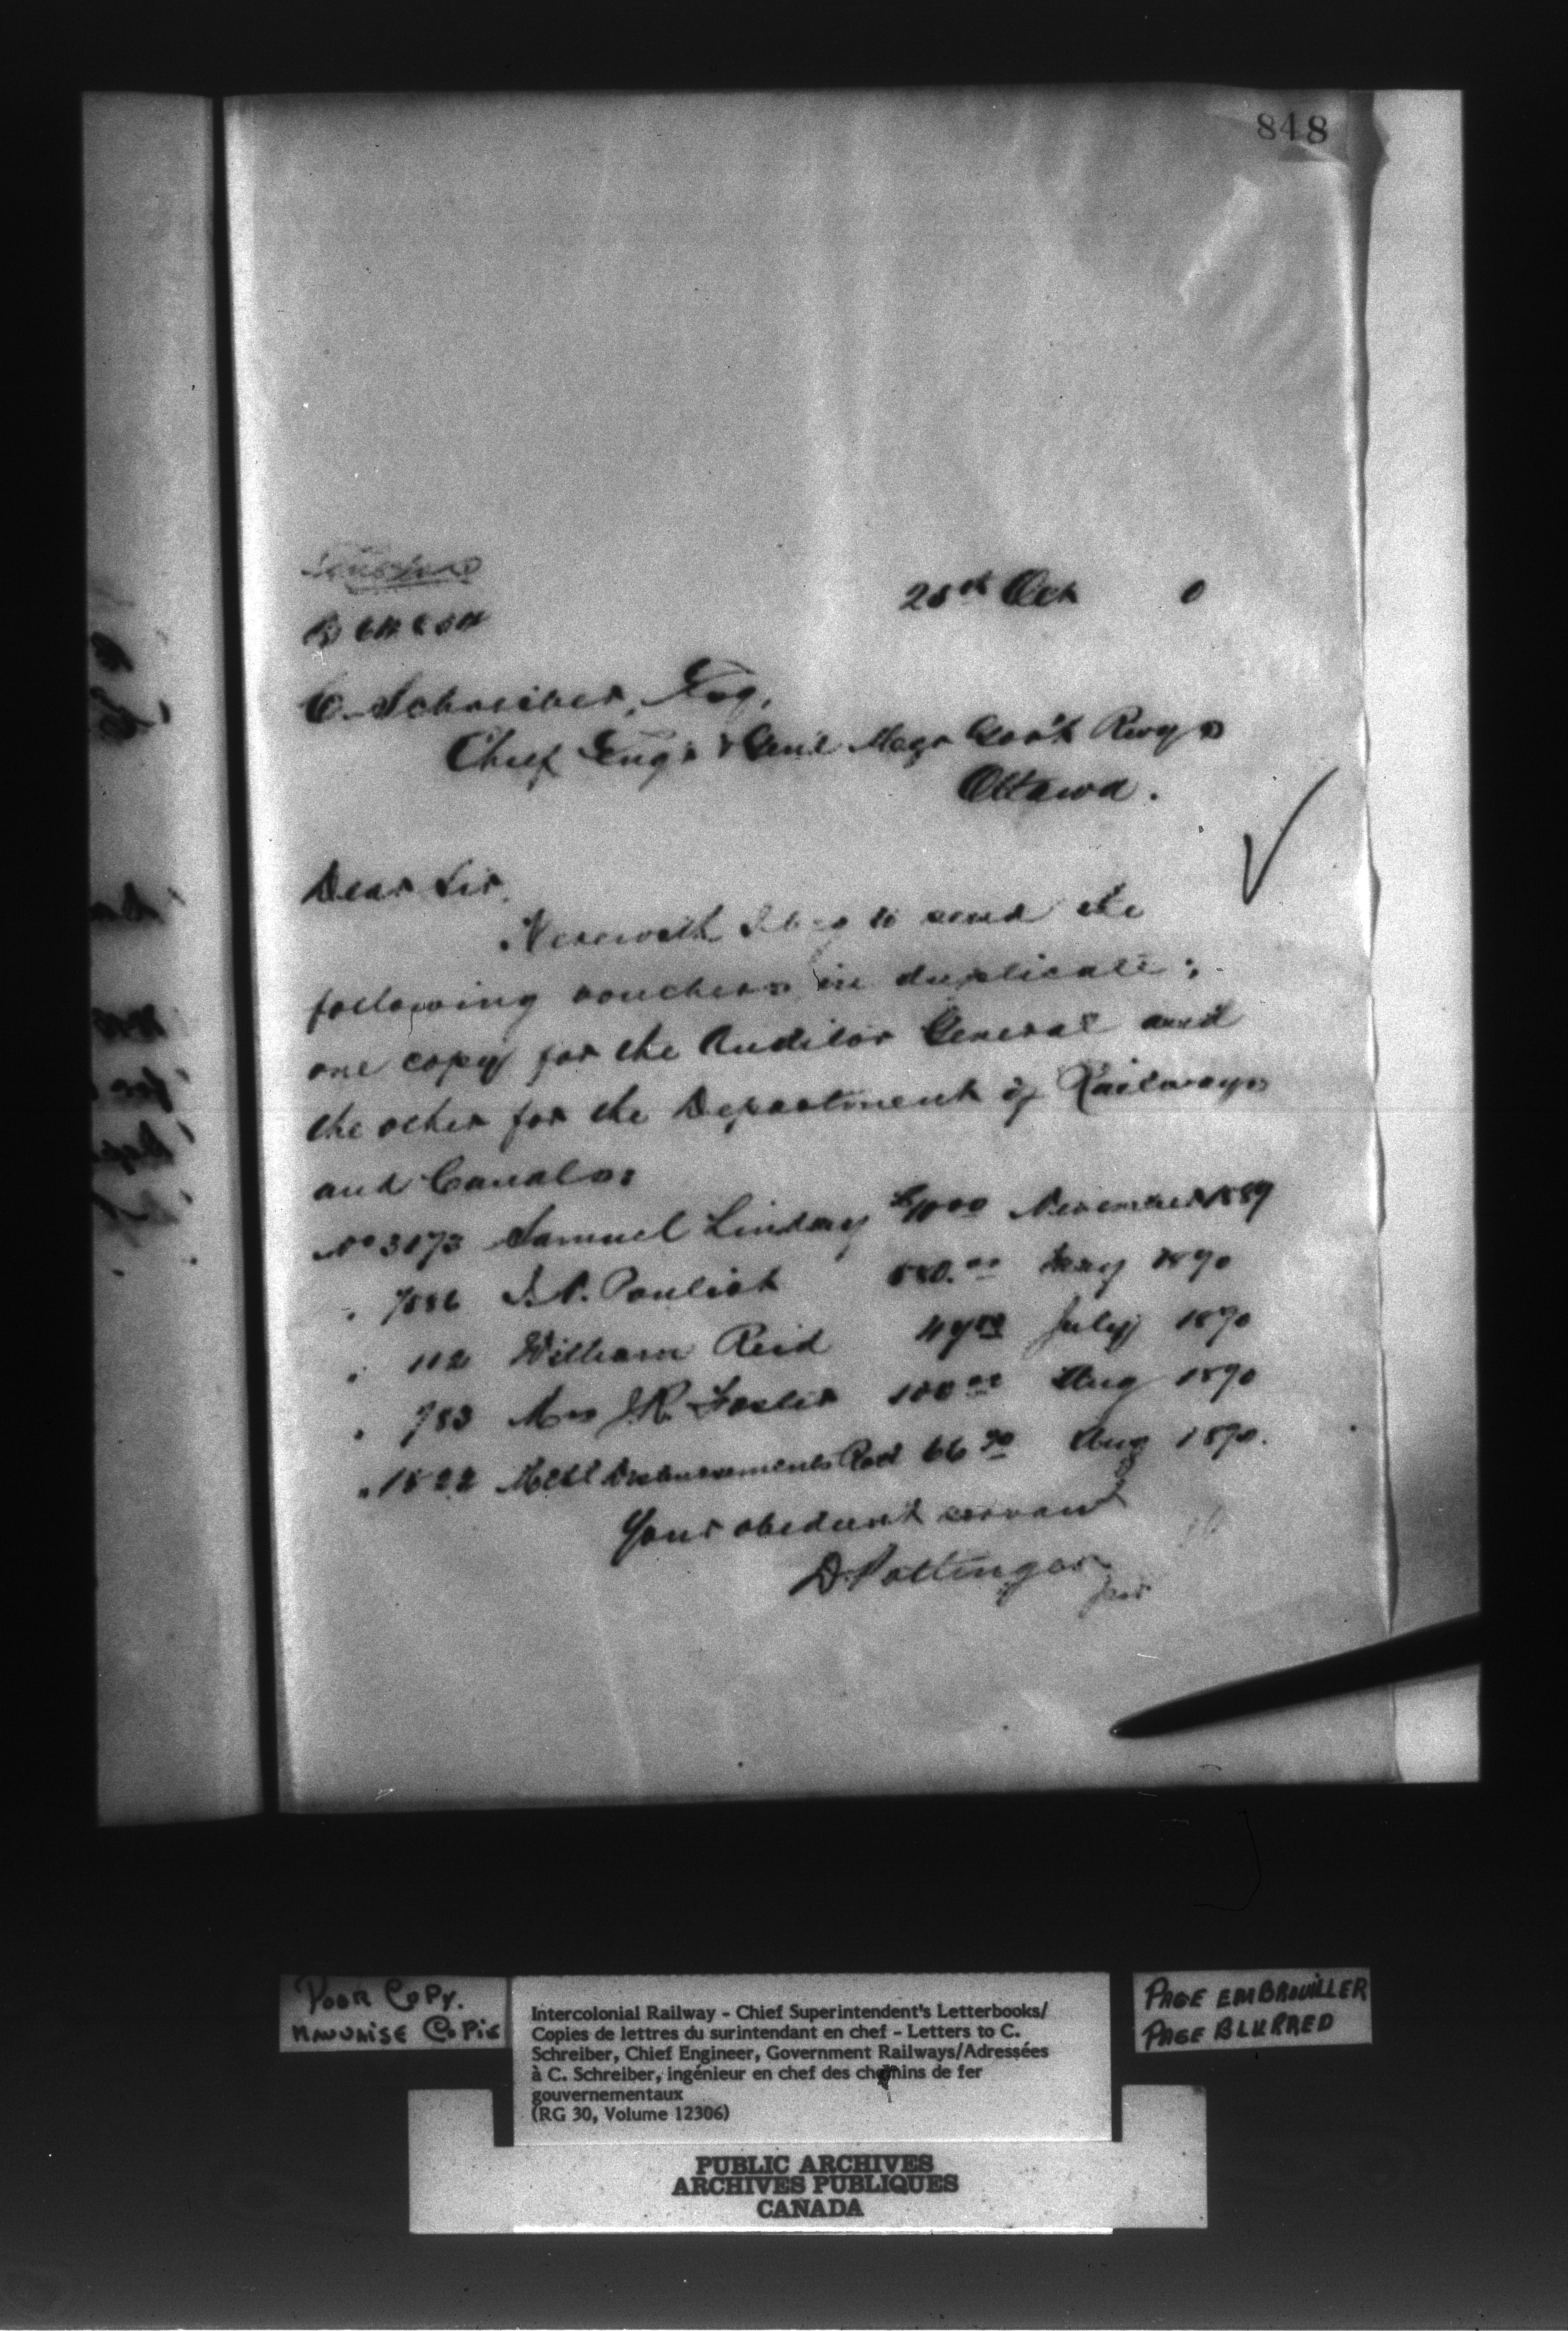 848
28th Oct 0
C. Schreiber, Esq,
Chief Engr & Genl Magr Govt Rwys
Ottawa.
Dear Sir,
Herewith I beg to send the
following vouchers in duplicate;
one copy for the Auditor General and
the other for the Department of Railways
and Canals:
No 3173 Samuel Lindsay November 1889
" 7886 May 1890
" 112 William Reid July 1890
" 783 Mrs J.R. Foster 100 00 Aug 1890
" 1822 Disbursements 66 90 Aug 1890.
Your obedient servant
D. Pottinger
Poor Copy.
Mauvaise Copie
Intercolonial Railway - Chief Superintendent's Letterbooks/
Copies de lettres du surintendant en chef - Letters to C.
Schreiber, Chief Engineer, Government Railways/Adressées
à C. Schreiber, ingénieur en chef des chemins de fer
gouvernementaux
(RG 30, Volume 12306)
PAGE EMBROUILLER
PAGE BLURRED
PUBLIC ARCHIVES
ARCHIVES PUBLIQUES
CANADA